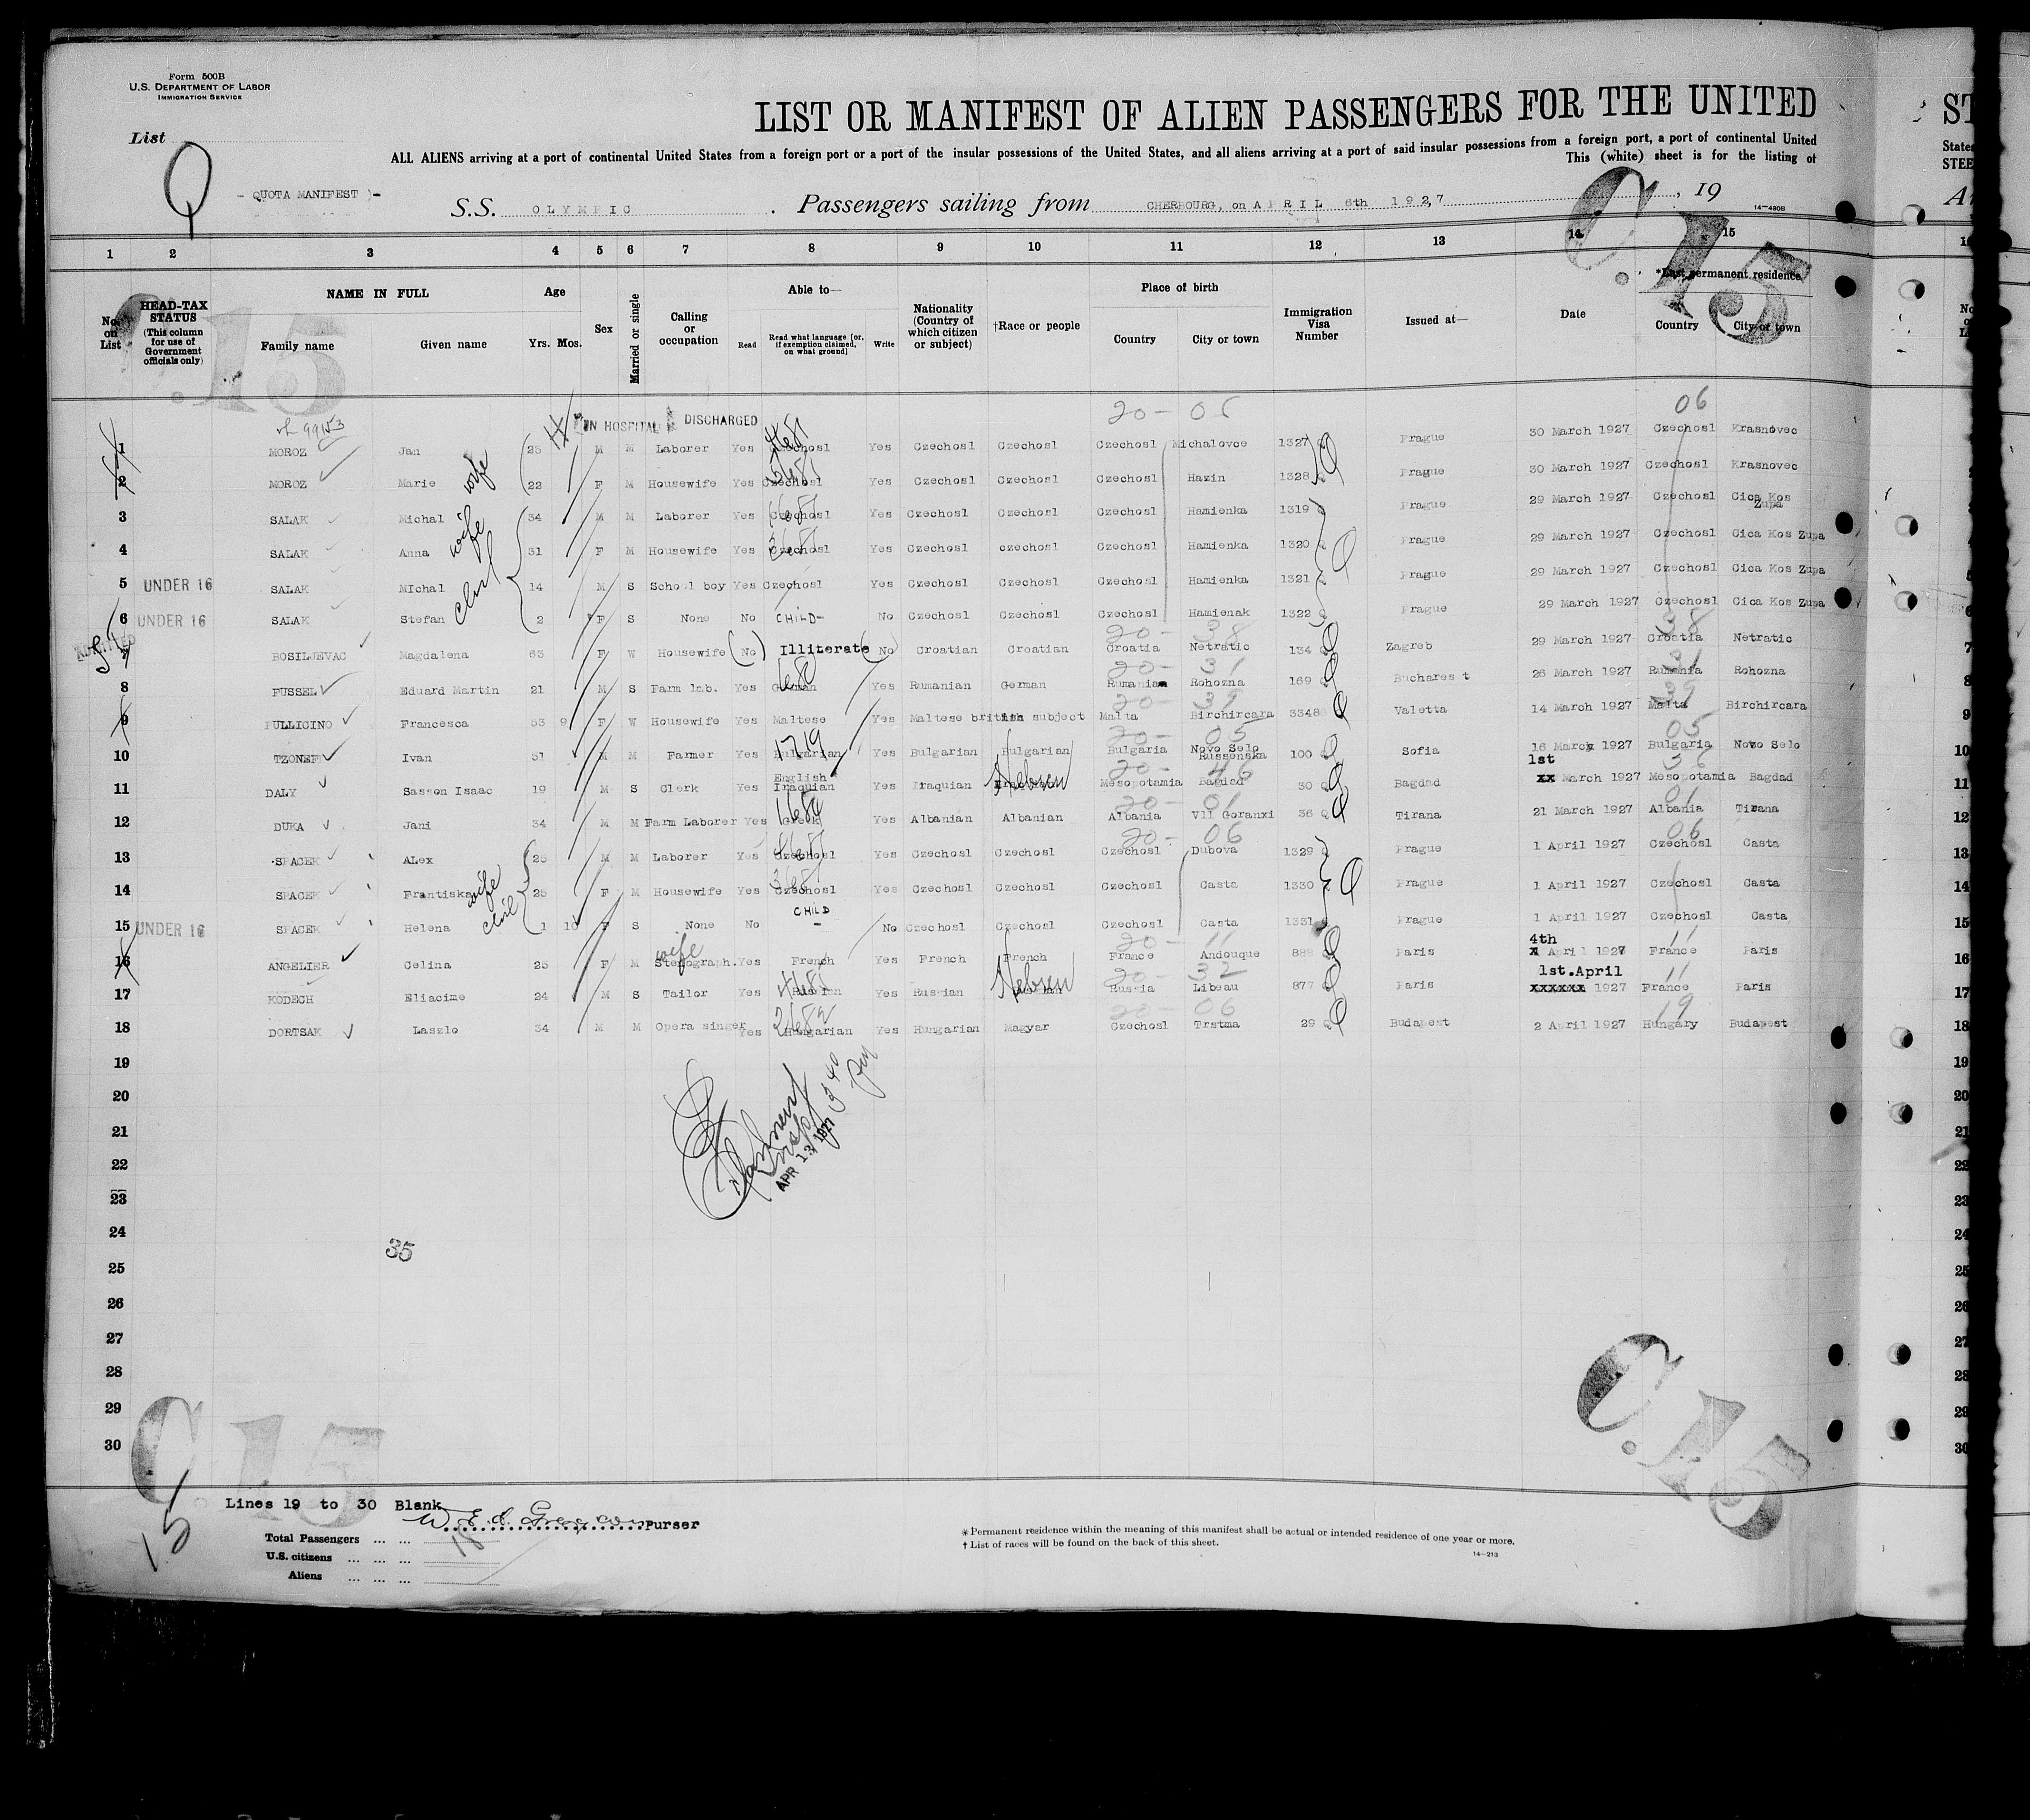 Form 500B
U.S. DEPARTMENT OF LABOR
IMMIGRATION SERVICE
List
Q
- QUOTA MANIFEST )-
LIST OR MANIFEST OF ALIEN PASSENGERS FOR THE UNITED
ALL ALIENS arriving at a port of continental United States from a foreign port or a port of the insular possessions of the United States, and all aliens arriving at a port of said insular possessions from a foreign port, a port of continental United
This (white) sheet is for the listing of
S.S. OLYMPIC. Passengers sailing from CHERBOURG, on APRIL 6th 1927, 19
14-480B
C.15
C.15
1 2 3 4 5 6 7 8 9 10 11 12 13 14 15
No. on List
HEAD-TAX STATUS (This column for use of Government officials only)
NAME IN FULL
Family name Given name
Age
Yrs. Mos.
Sex
Married or single
Calling or occupation
Able to—
Read
Read what language [or, if exemption claimed, on what ground]
Write
Nationality (Country of which citizen or subject)
†Race or people
Place of birth
Country City or town
Immigration Visa Number
Issued at—
Date
*Last permanent residence
Country City or town
IN HOSPITAL DISCHARGED
20- 06 06
1 MOROZ Jan 25 M M Laborer Yes Czechosl Yes Czechosl Czechosl Czechosl Michalovce 1327 Prague 30 March 1927 Czechosl Krasnovec
2 MOROZ Marie wife 22 F M Housewife Yes Czechosl Yes Czechosl Czechosl Czechosl Hazin 1328 Prague 30 March 1927 Czechosl Krasnovec
3 SALAK Michal 34 M M Laborer Yes Czechosl Yes Czechosl Czechosl Czechosl Hamienka 1319 Prague 29 March 1927 Czechosl Cica Kos Zupa
4 SALAK Anna wife 31 F M Housewife Yes Czechosl Yes Czechosl czechosl Czechosl Hamienka 1320 Prague 29 March 1927 Czechosl Cica Kos Zupa
5 UNDER 16 SALAK MIchal 14 M S School boy Yes Czechosl Yes Czechosl Czechosl Czechosl Hamienka 1321 Prague 29 March 1927 Czechosl Cica Kos Zupa
6 UNDER 16 SALAK Stefan 2 F S None No CHILD- No Czechosl Czechosl Czechosl Hamienak 1322 Prague 29 March 1927 Czechosl Cica Kos Zupa
20- 38 38
ADMITTED
7 BOSILJEVAC Magdalena 63 F W Housewife (No) Illiterate (No) Croatian Croatian Croatia Netratic 134 Zagreb 29 March 1927 Croatia Netratic
20- 31 31
8 FUSSEL Eduard Martin 21 M S Farm lab. Yes German Yes Rumanian German Rumania Rohozna 169 Bucharest 26 March 1927 Rumania Rohozna
20- 39 39
9 PULLICINO Francesca 53 9 F W Housewife Yes Maltese Yes Maltese british subject Malta Birchircara 3348 Valetta 14 March 1927 Malta Birchircara
20- 05 05
10 TZONEF Ivan 51 M M Farmer Yes Bulgarian Yes Bulgarian Bulgarian Bulgaria Novo Selo Russenska 100 Sofia 16 March 1927 Bulgaria Novo Selo
20- 46 36
11 DALY Sasson Isaac 19 M S Clerk Yes English Iraquian Yes Iraquian Hebrew Mesopotamia Bagdad 30 Bagdad 1st xx March 1927 Mesopotamia Bagdad
20- 01 01
12 DUKA Jani 34 M M Farm Laborer Yes Greek Yes Albanian Albanian Albania Vll Goranxi 36 Q Tirana 21 March 1927 Albania Tirana
20- 06 06
13 SPACEK ALex 25 M M Laborer Yes Czechosl Yes Czechosl Czechosl Czechosl Dubova 1329 Prague 1 April 1927 Czechosl Casta
14 SPACEK Frantiska wife 25 F M Housewife Yes Czechosl Yes Czechosl Czechosl Czechosl Casta 1330 Prague 1 April 1927 Czechosl Casta
15 UNDER 16 SPACEK Helena 1 10 F S None No CHILD - No Czechosl Czechosl Czechosl Casta 1331 Prague 1 April 1927 Czechosl Casta
20- 11 11
16 ANGELIER Celina 25 F M wife Stenograph. Yes French Yes French French France Andouque 888 Paris 4th x April 1927 France Paris
20- 32 11
17 KODECH Eliacime 24 M S Tailor Yes Russian Yes Russian Hebrew Russia Libeau 877 Paris 1st.April xxxxxx 1927 France Paris
20- 06 19
18 DORTSAK Laszlo 34 M M Opera singer Yes Hungarian Yes Hungarian Magyar Czechosl Trstma 29 Budapest 2 April 1927 Hungary Budapest
19
20
21
22
23
24
25
26
27
28
29
30
APR 13 1927
35
C.15
C.15
15
Lines 19 to 30 Blank
Purser
Total Passengers ... ... 18
U.S. citizens ... ... ...
Aliens ... ... ...
* Permanent residence within the meaning of this manifest shall be actual or intended residence of one year or more.
† List of races will be found on the back of this sheet.
14-213